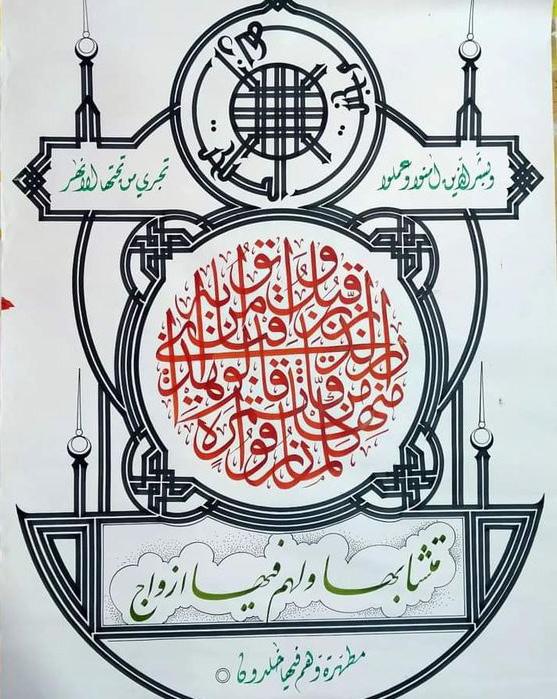 وبشر الذين امنوا وعملوا
الصلحت
تجري من تحتها الانهر
كلما رزقوا منها من ثمرة رزقا قالوا هذا الذي رزقنا من قبل واتوا به
متشابها ولهم فيها ازواج
مطهرة وهم فيها خلدون